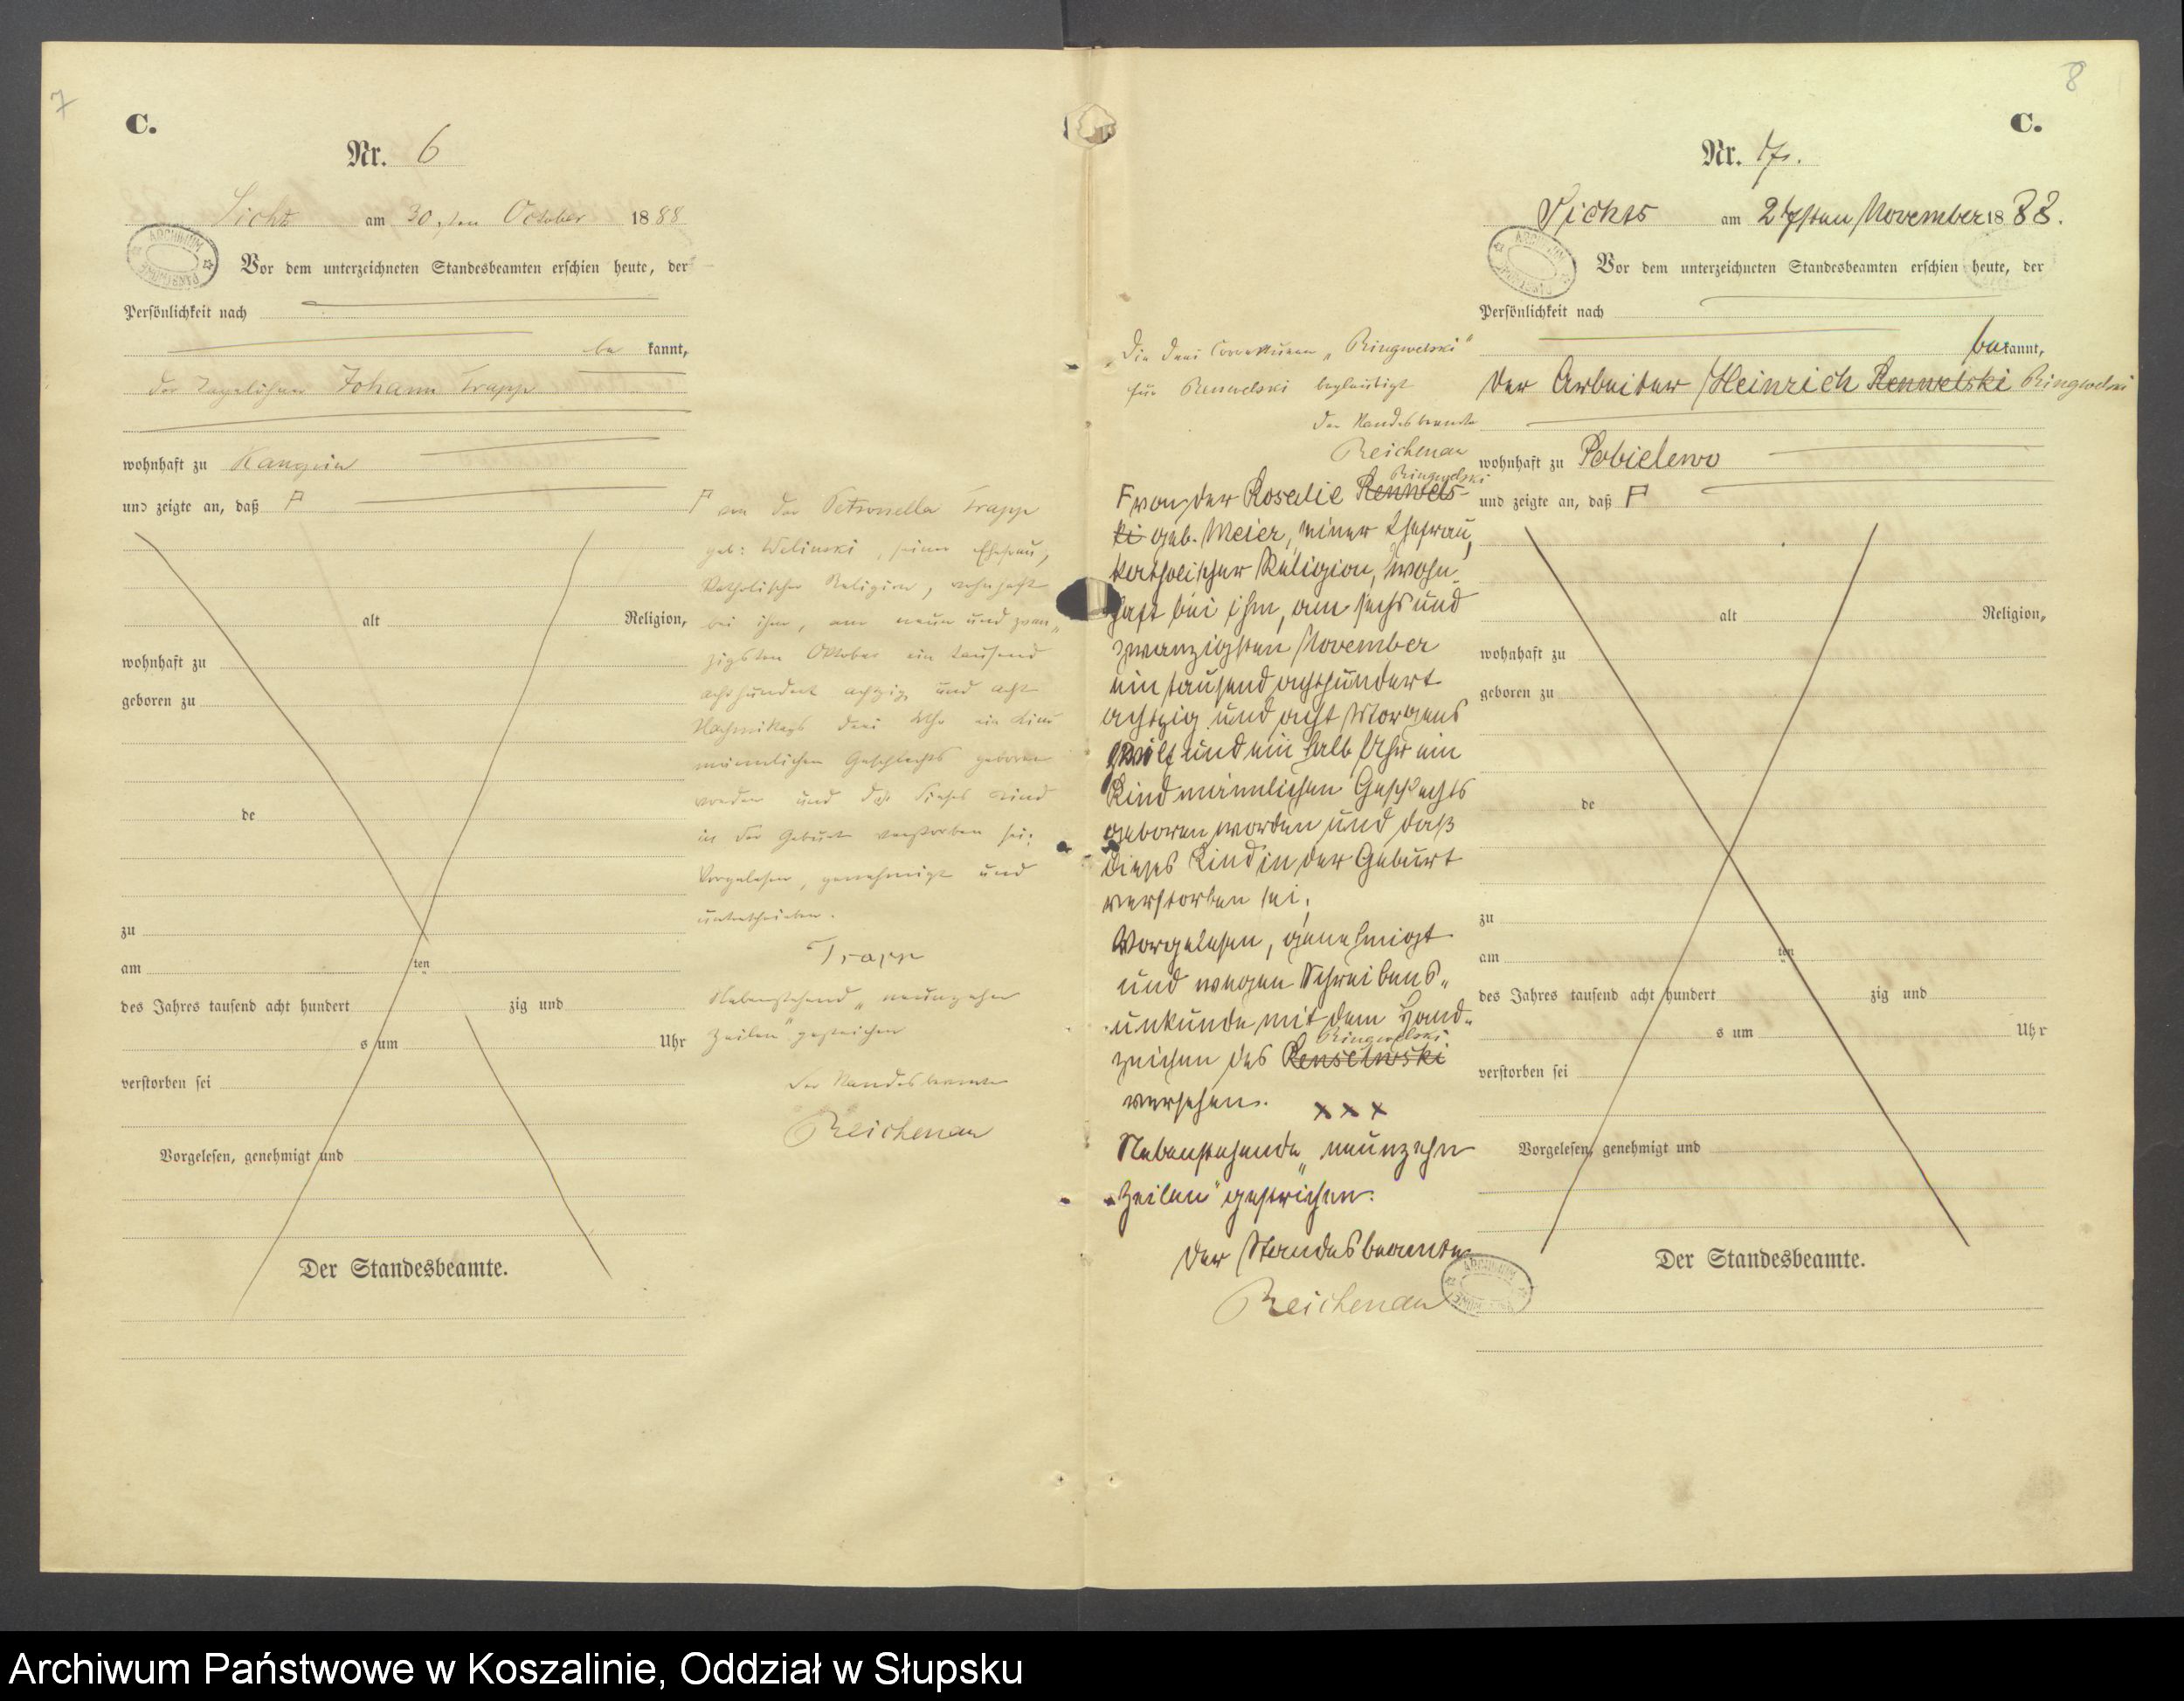 7
C.
Nr. 6
am 30sten October 1888
Vor dem unterzeichneten Standesbeamten erschien heute, der
Persönlichkeit nach
be kannt,
der Tagelöhner Johann Trapp
wohnhaft zu
und zeigte an, daß F
alt Religion,
wohnhaft zu
geboren zu
de
zu
am ten
des Jahres tausend acht hundert zig und
s um Uhr
verstorben sei
Vorgelesen, genehmigt und
Der Standesbeamte.
F von der Petronella Trapp
geb: Welinski, seiner Ehefrau,
katholischer Religion, wohnhaft
bei ihm, am neun und zwan„
zigsten Oktober ein tausend
acht hundert achtzig und acht
Nachmittags drei Uhr ein Kind
männlichen Geschlechts geboren
worden und daß dieses Kind
in der Geburt verstorben sei.
Vorgelesen, genehmigt und
unterschrieben.
Trapp
Nebenstehend „neunzehn
Zeilen" gestrichen
Der Standesbeamte
Reichenau
8
C.
Nr. 7.
am 27sten November 1888.
Vor dem unterzeichneten Standesbeamten erschien heute, der
Persönlichkeit nach
bekannt,
der Arbeiter Heinrich Renwelski Ringwelski
wohnhaft zu Pobielewo
und zeigte an, daß F
alt Religion,
wohnhaft zu
geboren zu
de
zu
am ten
des Jahres tausend acht hundert zig und
s um Uhr
verstorben sei
Vorgelesen, genehmigt und
Der Standesbeamte.
Die drei Correkturen „Ringwelski"
für Renwelski beglaubigt
Der Standesbeamte
Reichenau
Ringwelski
F von der Rosalie Renwels-
ki geb. Meier, seiner Ehefrau,
katholischer Religion, wohn-
haft bei ihm, am sechs und
zwanzigsten November
ein tausend achthundert
achtzig und acht Morgens
zwölf und ein halb Uhr ein
Kind männlichen Geschlechts
geboren worden und daß
dieses Kind in der Geburt
verstorben sei.
Vorgelesen, genehmigt
und wegen Schreibens„
unkunde mit dem Hand„
Ringwelski
zeichen des Renselwski
versehen. x x x
Nebenstehende „neunzehn
Zeilen" gestrichen.
Der Standesbeamte
Reichenau
Archiwum Państwowe w Koszalinie, Oddział w Słupsku